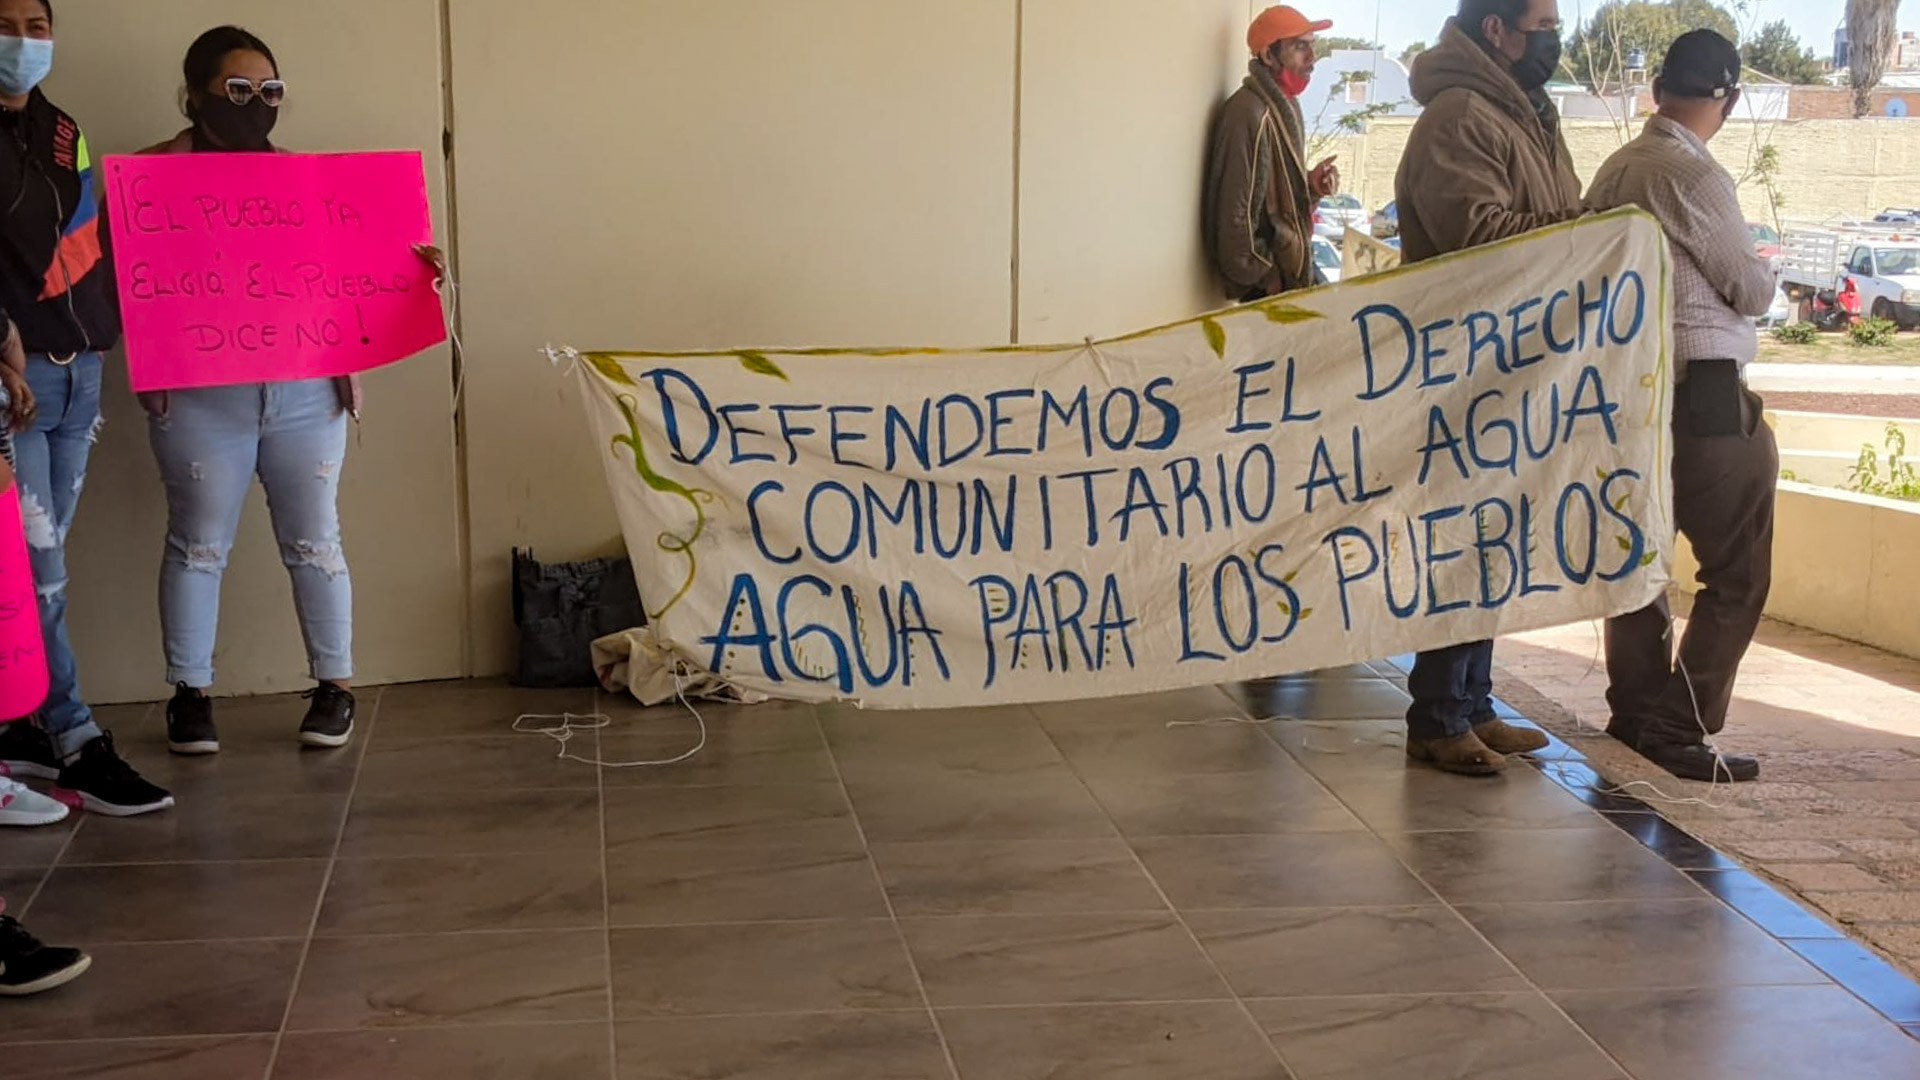 SAVAGE
¡EL PUEBLO YA
ELIGIÓ EL PUEBLO
DICE NO!
DEFENDEMOS EL DERECHO
COMUNITARIO AL AGUA
AGUA PARA LOS PUEBLOS